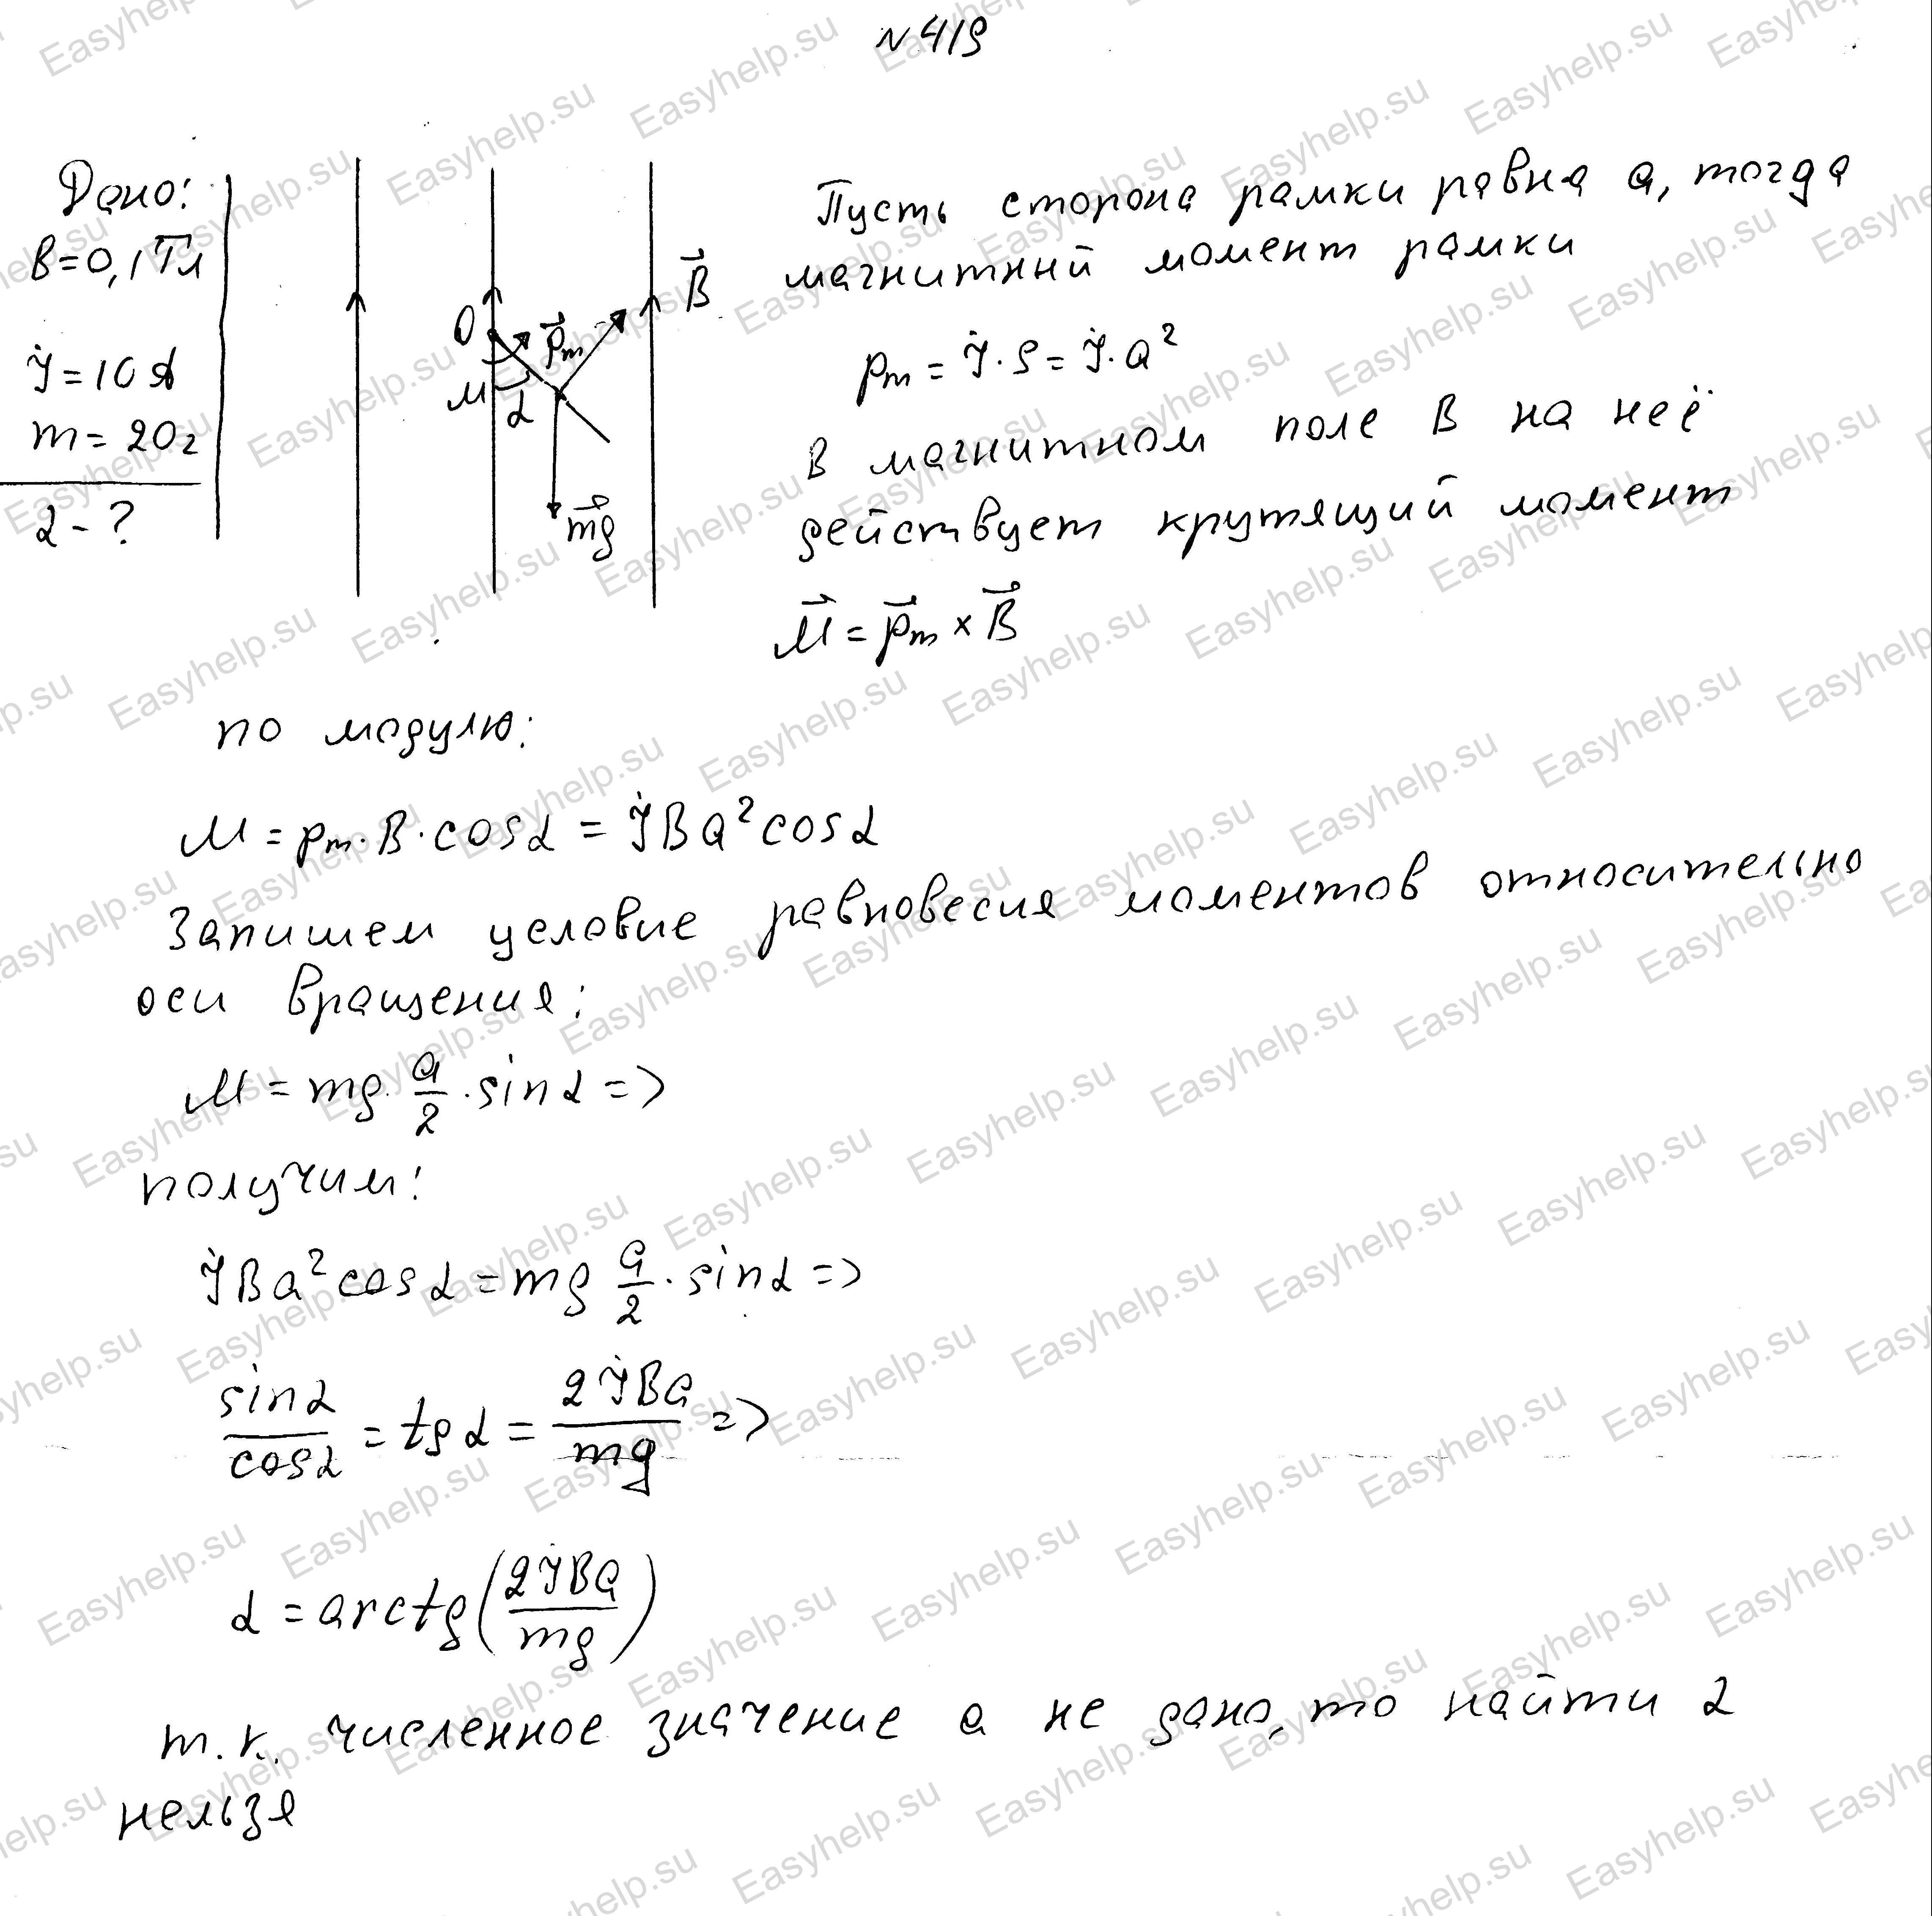 №419
Дано:
B=0,1Тл
I=10А
m=20г
α-?
O
M
α
p⃗m
B⃗
mg⃗
Пусть сторона рамки равна a, тогда
магнитный момент рамки
pm = I·S = I·a²
В магнитном поле B на неё
действует крутящий момент
M⃗ = p⃗m × B⃗
по модулю:
M = pm·B·cosα = IBa²cosα
Запишем условие равновесия моментов относительно
оси вращения:
M = mg·a/2·sinα =>
получим:
IBa²cosα = mg a/2·sinα =>
sinα/cosα = tgα = 2IBa/mg =>
α = arctg(2IBa/mg)
т.к. численное значение a не дано, то найти α
нельзя
Easyhelp.su